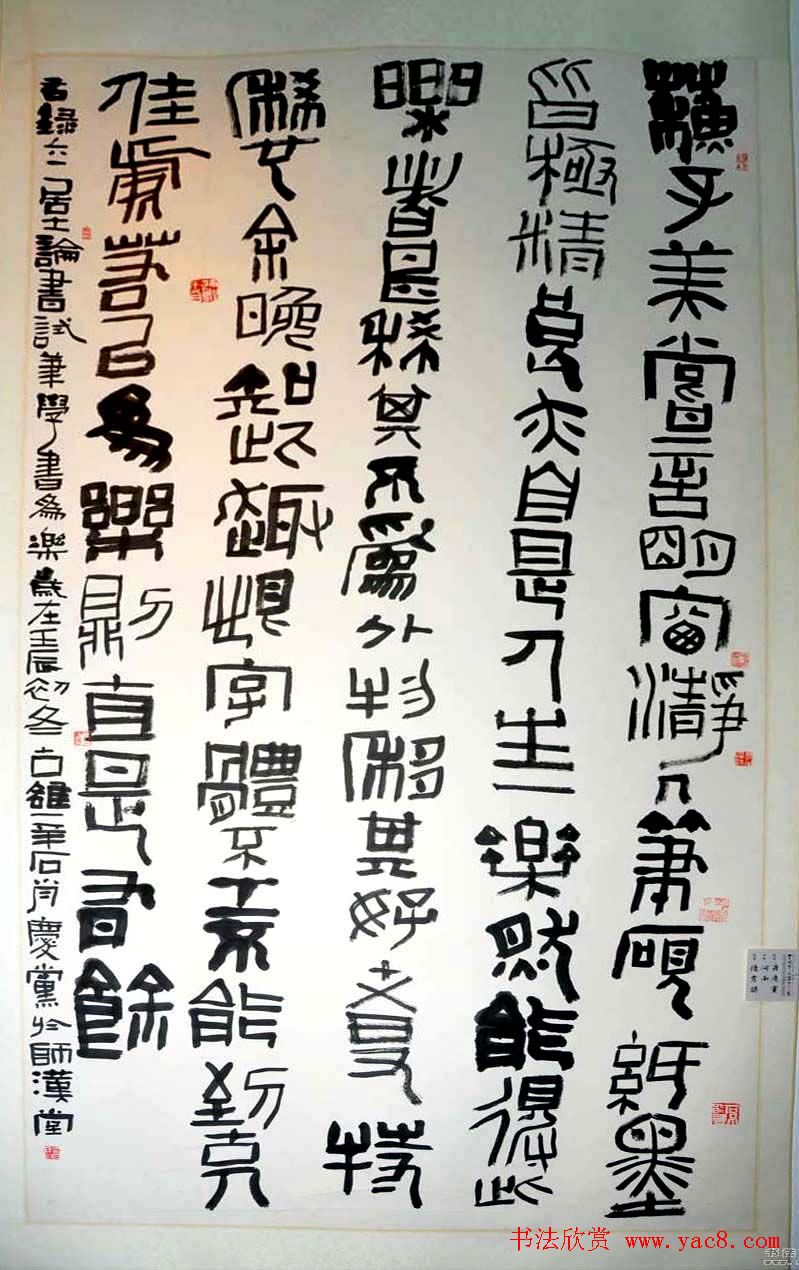 蘇子美嘗言明窗瀞几筆硯紙墨
皆極精良亦自是人生一樂然能得此
樂者甚稀其不為外物移其好者又特
稀也余晚知此趣恨字體不工不能到古
人佳處若以為樂則自是有餘
右錄六一居士論書試筆學書為樂歲在壬辰初冬古雒一筆石肖慶黨於師漢堂
书法欣赏 www.yac8.com